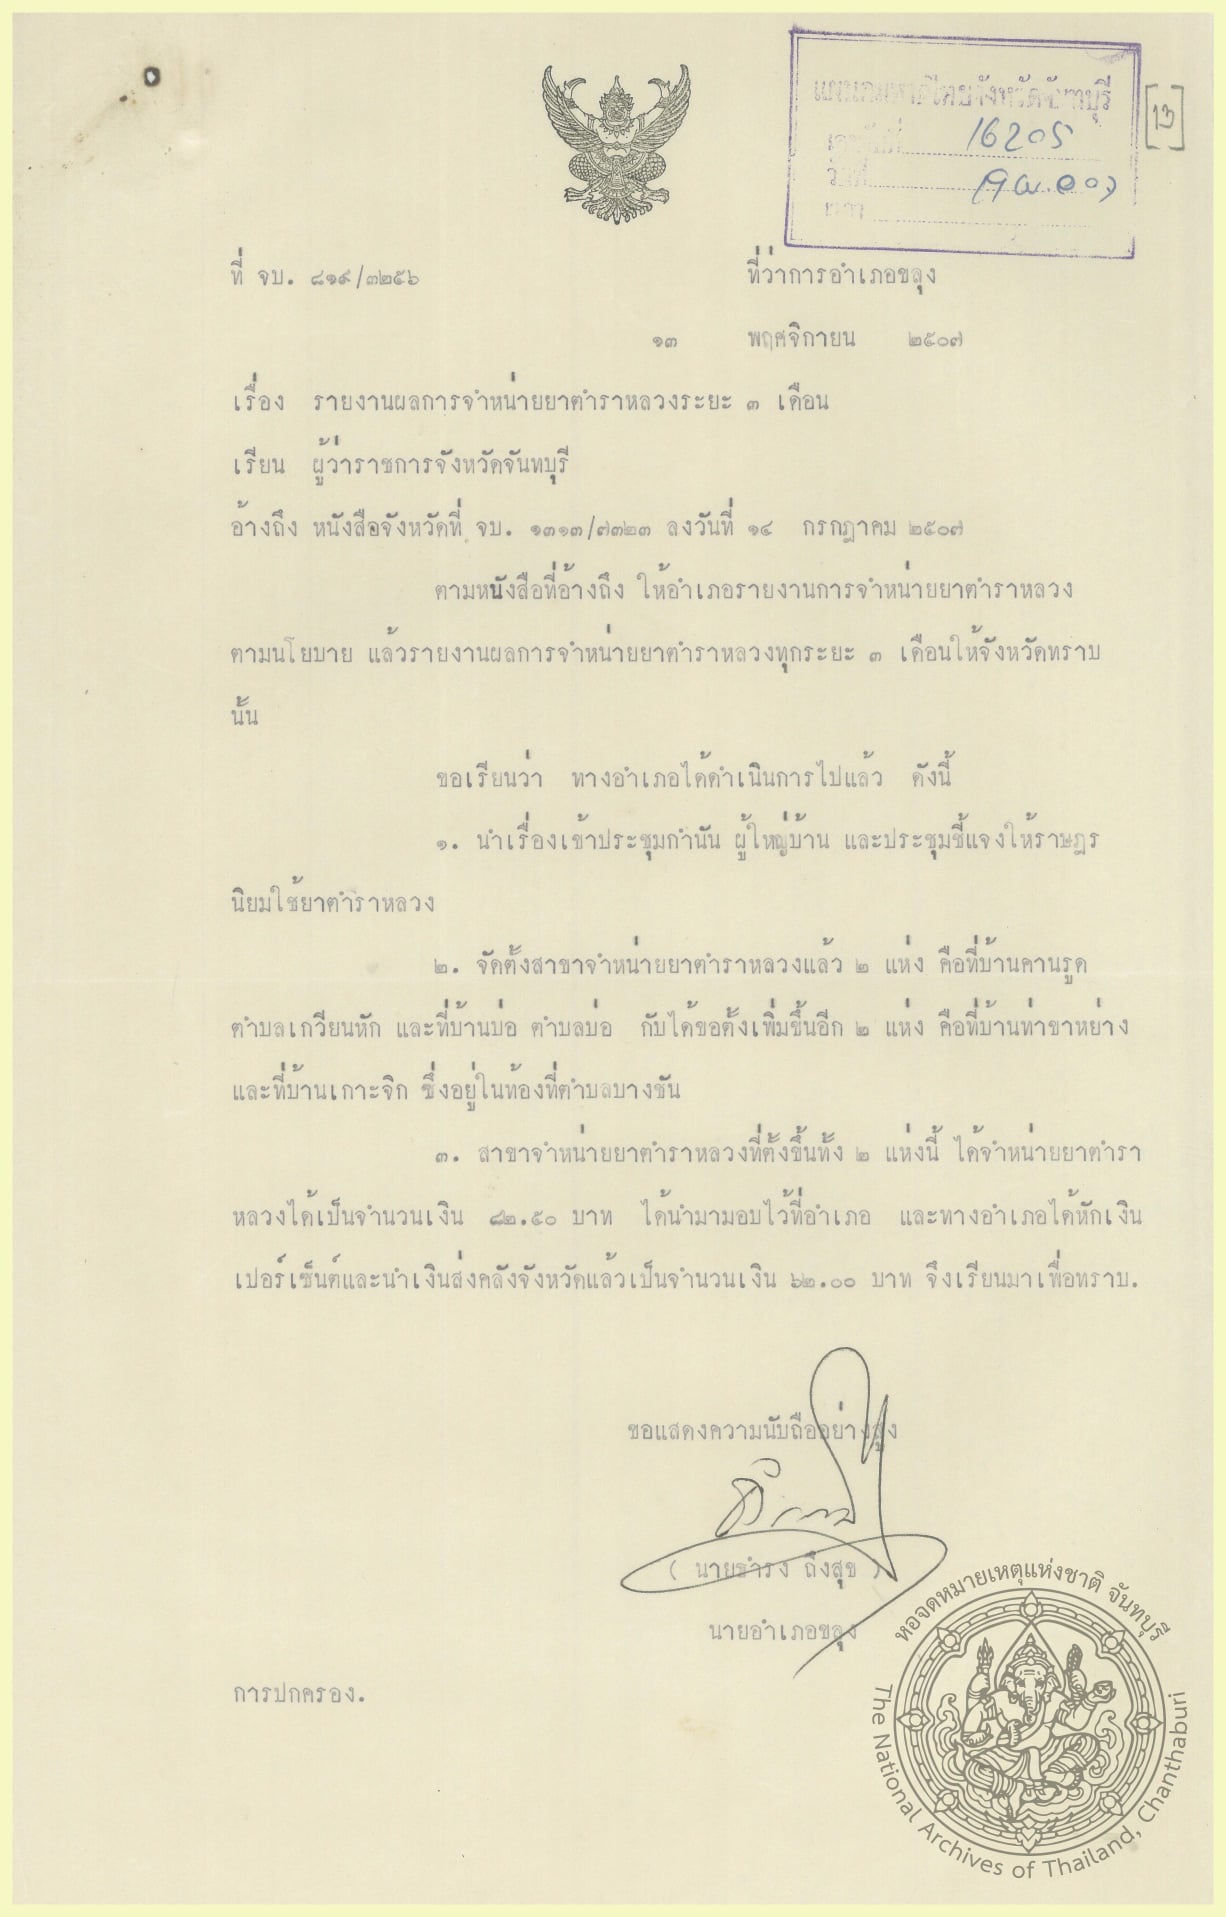 แผนกมหาดไทยจังหวัดจันทบุรี
เลขรับที่ 16205
วันที่
เวลา
[๑๓]
ที่ จบ. ๘๑๙/๓๒๕๖ ที่ว่าการอำเภอขลุง
๑๓ พฤศจิกายน ๒๕๐๗
เรื่อง รายงานผลการจำหน่ายยาตำราหลวงระยะ ๓ เดือน
เรียน ผู้ว่าราชการจังหวัดจันทบุรี
อ้างถึง หนังสือจังหวัดที่ จบ. ๑๓๑๓/๗๓๒๓ ลงวันที่ ๑๔ กรกฎาคม ๒๕๐๗
ตามหนังสือที่อ้างถึง ให้อำเภอรายงานการจำหน่ายยาตำราหลวง
ตามนโยบาย แล้วรายงานผลการจำหน่ายยาตำราหลวงทุกระยะ ๓ เดือนให้จังหวัดทราบ
นั้น
ขอเรียนว่า ทางอำเภอได้ดำเนินการไปแล้ว ดังนี้
๑. นำเรื่องเข้าประชุมกำนัน ผู้ใหญ่บ้าน และประชุมชี้แจงให้ราษฎร
นิยมใช้ยาตำราหลวง
๒. จัดตั้งสาขาจำหน่ายยาตำราหลวงแล้ว ๒ แห่ง คือที่บ้านคานรูด
ตำบลเกวียนหัก และที่บ้านบ่อ ตำบลบ่อ กับได้ขอตั้งเพิ่มขึ้นอีก ๒ แห่ง คือที่บ้านท่าขาหย่าง
และที่บ้านเกาะจิก ซึ่งอยู่ในท้องที่ตำบลบางชัน
๓. สาขาจำหน่ายยาตำราหลวงที่ตั้งขึ้นทั้ง ๒ แห่งนี้ ได้จำหน่ายยาตำรา
หลวงได้เป็นจำนวนเงิน ๘๒.๕๐ บาท ได้นำมามอบไว้ที่อำเภอ และทางอำเภอได้หักเงิน
เปอร์เซ็นต์และนำเงินส่งคลังจังหวัดแล้วเป็นจำนวนเงิน ๖๒.๐๐ บาท จึงเรียนมาเพื่อทราบ.
ขอแสดงความนับถืออย่างสูง
( นายธำรง ถึงสุข )
นายอำเภอขลุง
การปกครอง.
หอจดหมายเหตุแห่งชาติ จันทบุรี
The National Archives of Thailand, Chanthaburi